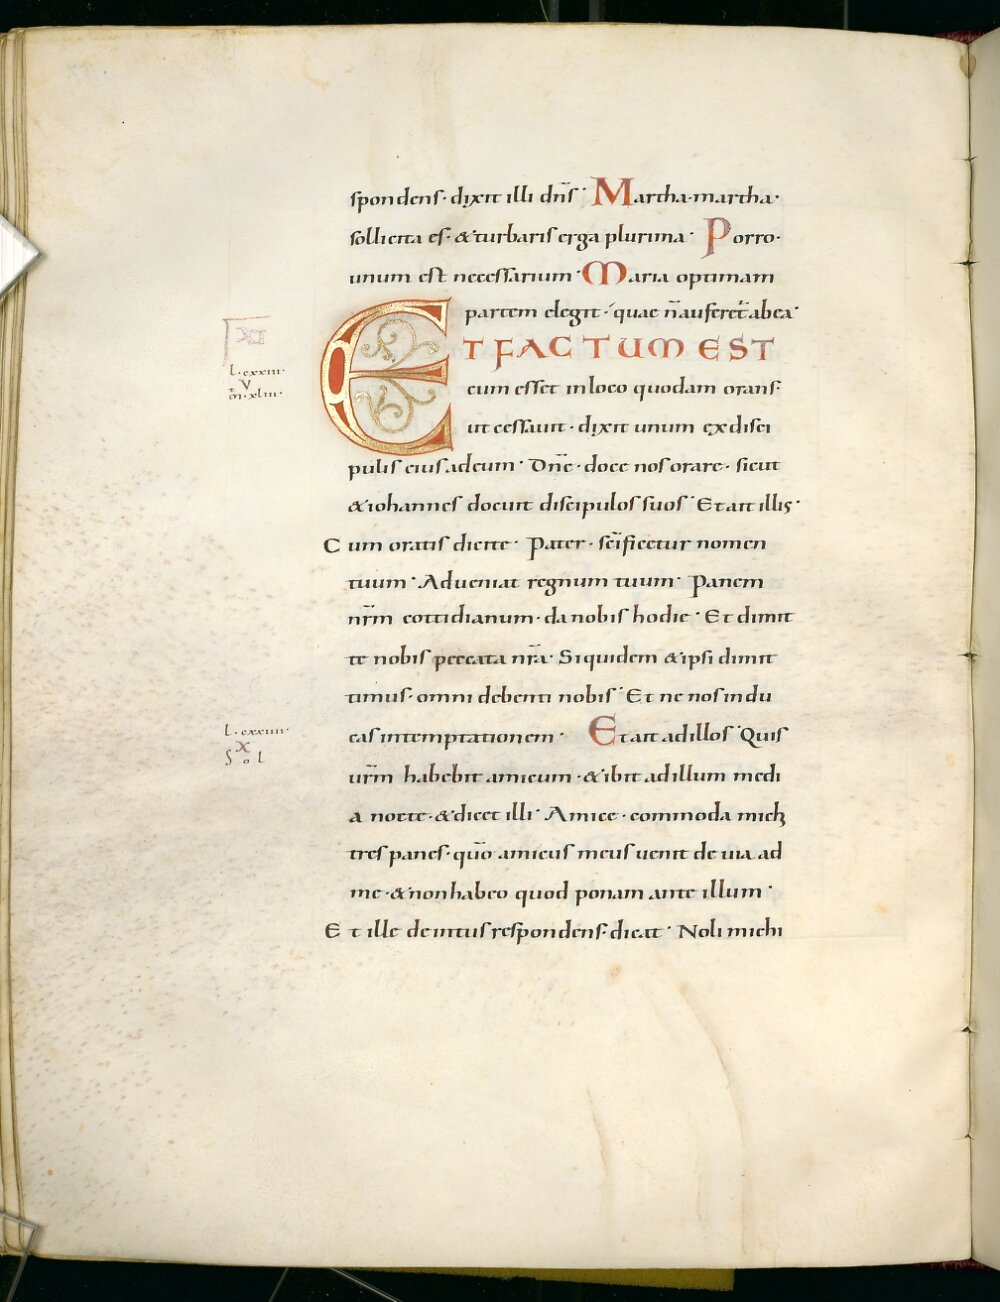 spondens· dixit illi dn̄s· Martha·martha·
sollicita es· &turbaris erga plurima· Porro·
unum est necessarium· Maria optimam
partem elegit· quae n̄ auferet̄ abea·
ET FACTUM EST
XI
L·cxxiii·
V
m̄·xliii·
cum esset inloco quodam orans·
ut cessauit· dixit unum exdisci
pulis eius adeum· Dn̄e· doce nos orare· sicut
&iohannes docuit discipulos suos· Et ait illis·
Cum oratis dicite· Pater· sc̄ificetur nomen
tuum· Adueniat regnum tuum· Panem
nr̄m cottidianum· da nobis hodie· Et dimit
te nobis peccata nr̄a· Siquidem &ipsi dimit
timus· omni debenti nobis· Et ne nos indu
cas intemptationem· Et ait adillos· Quis
L·cxxiiii·
X
Sol
ur̄m habebit amicum· &ibit adillum medi
a nocte· &dicet illi· Amice· commoda mich
tres panes· quo̅ amicus meus uenit de uia ad
me· &non habeo quod ponam ante illum·
Et ille deintus respondens· dicat· Noli michi